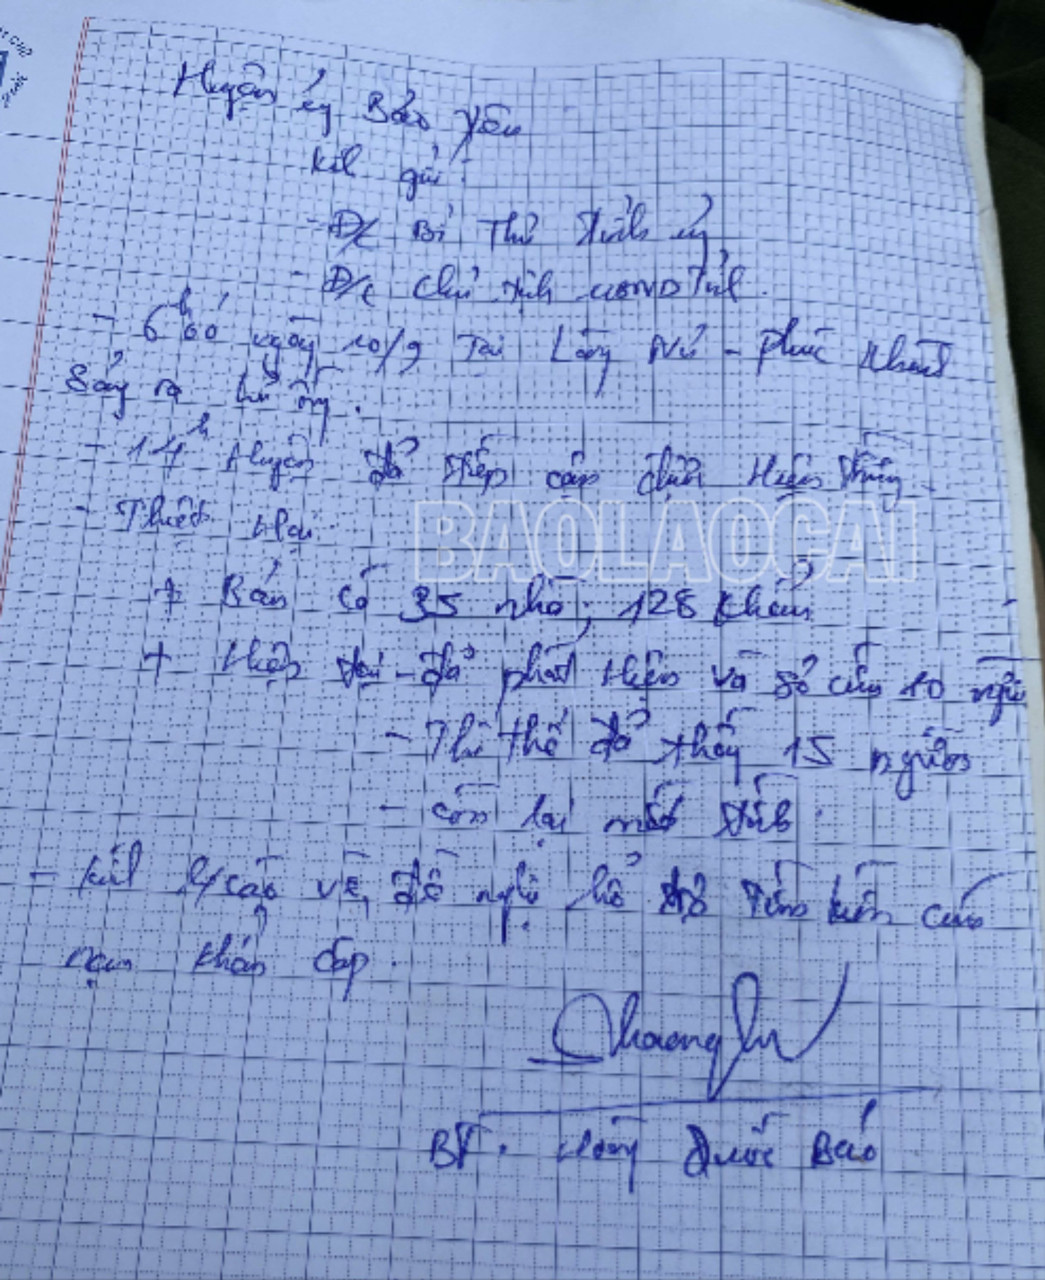 Huyện ủy Bảo Yên
Kính gửi:
- Đ/c Bí Thư tỉnh ủy
- Đ/c Chủ tịch UBND Tỉnh.
- 6h00 ngày 10/9 Tại Làng Nủ - Phúc Khánh
Sảy ra lũ ống.
- 14h Huyện đã tiếp cận được Hiện trường
- Thiệt Hại
+ Bản có 35 nhà, 128 khẩu
+ Hiện tại - đã phát Hiện và sơ cứu 10 người
- Thi thể đã thấy 15 người
- còn lại mất tích.
- Kính b/cáo và đề nghị hỗ trợ tìm kiếm cứu
nạn khẩn cấp.
BT. Hoàng Quốc Bảo
BAOLAOCAI